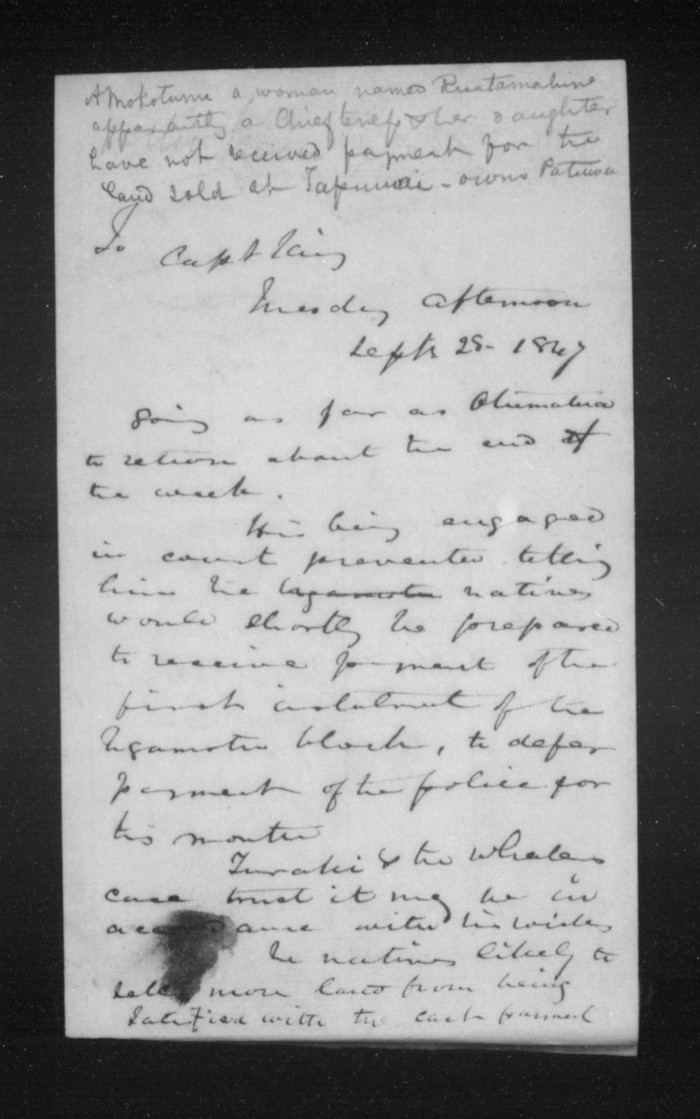 At Mokotunu a woman named Ruatamahine
apparently a Chieftess & her daughter
have not received payment for the
land sold at Tapuinikau - owns Patuwa
To Capt King
Tuesday afternoon
Septr 28 - 1847
Going as far as Otumatua
to return about the end of
the week.
His being engaged
in court prevented telling
him the Ngamotu natives
would shortly be prepared
to receive payment of the
first instalment of the
Ngamotu block, to defer
payment of the police for
this month
Turaki & the Whalers
case trust it may be in
accordance with his wishes
The natives likely to
sell more land from being
satisfied with the cash payment